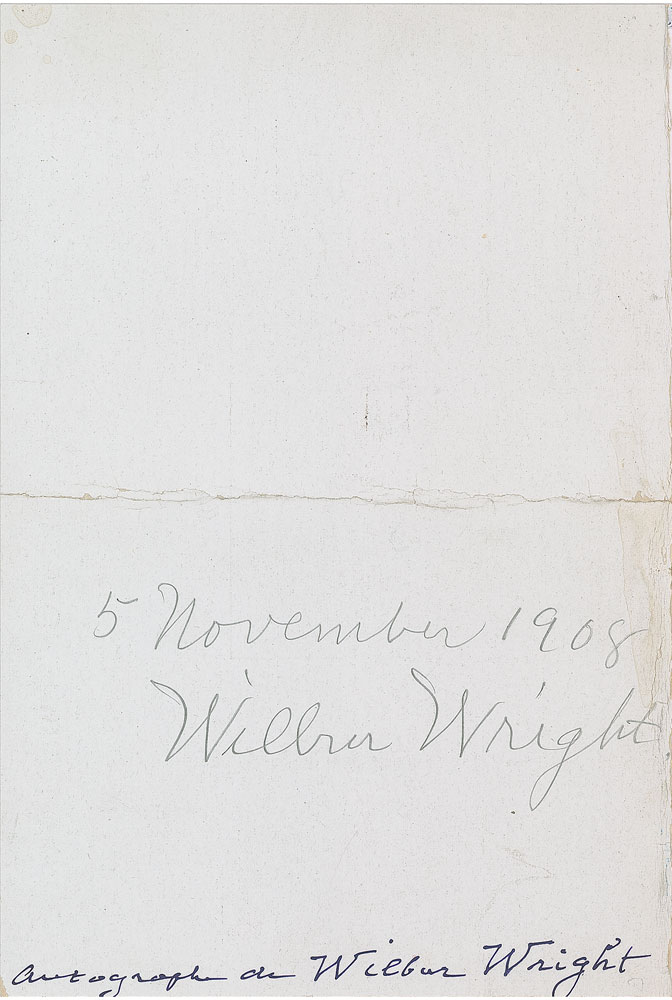 5 November 1908
Wilbur Wright
autographe de Wilbur Wright